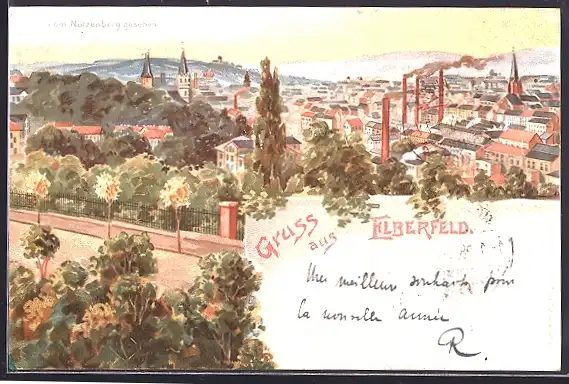 vom Nützenberg gesehen
Gruss
aus
ELBERFELD.
Mes meilleurs souhaits pour
la nouvelle année
R.